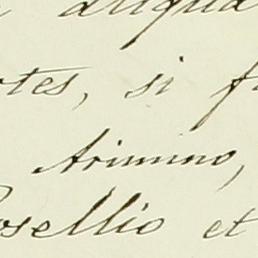 aliqua
otes, si f
Arimino,
osellio et